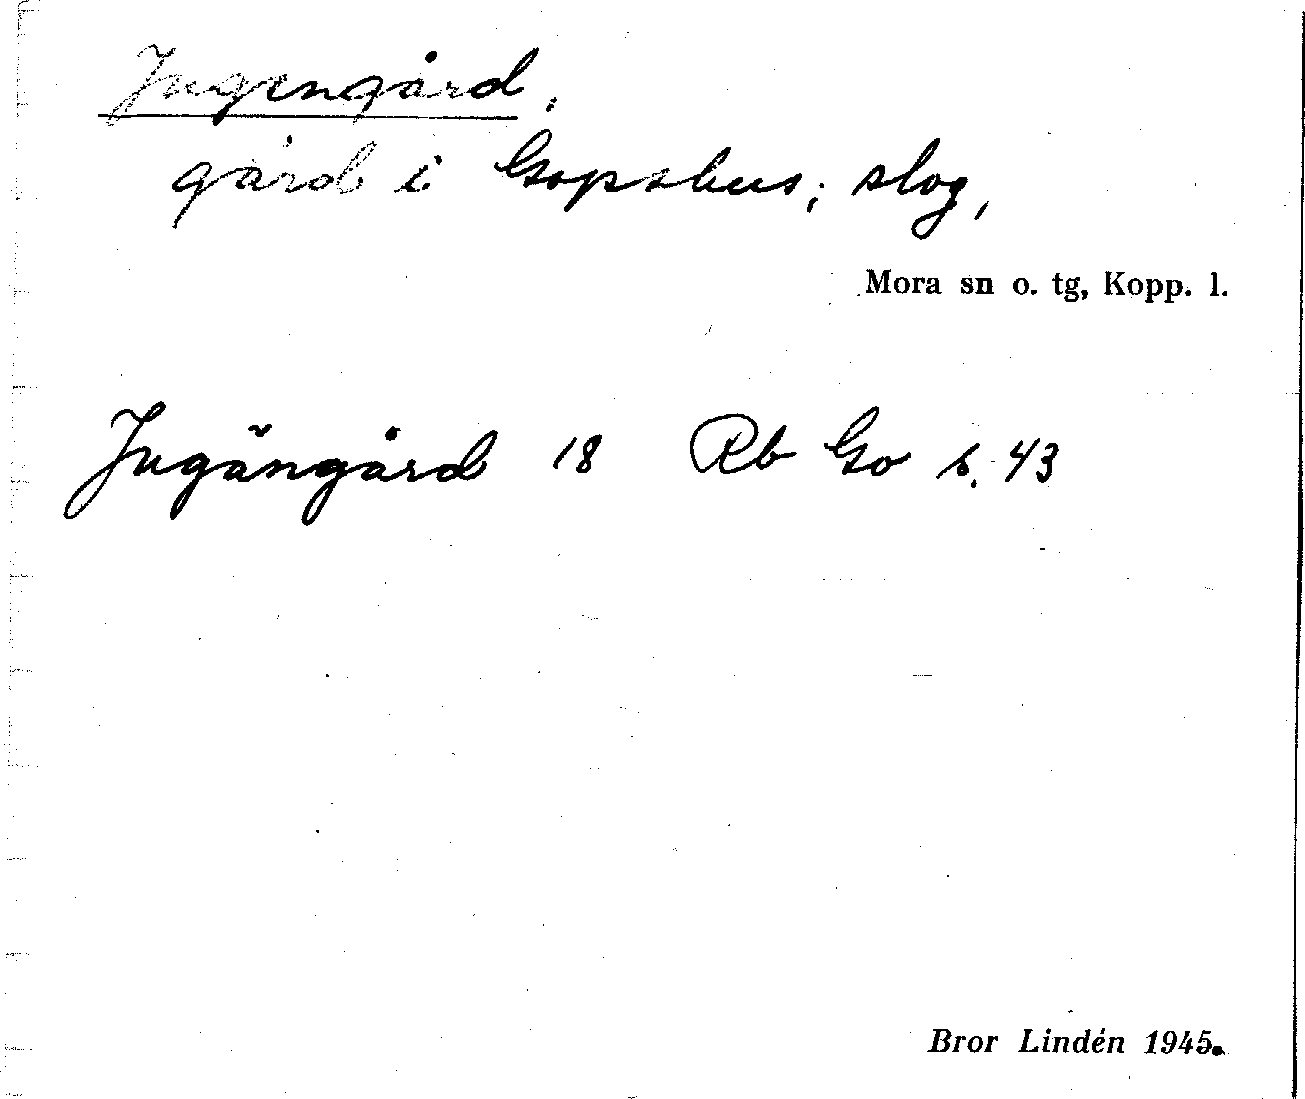 Jugengård,
gård i Gopshus; slog,
Mora sn o. tg, Kopp. l.
Jugångård 18 Rb Go s. 43
Bror Lindén 1945.